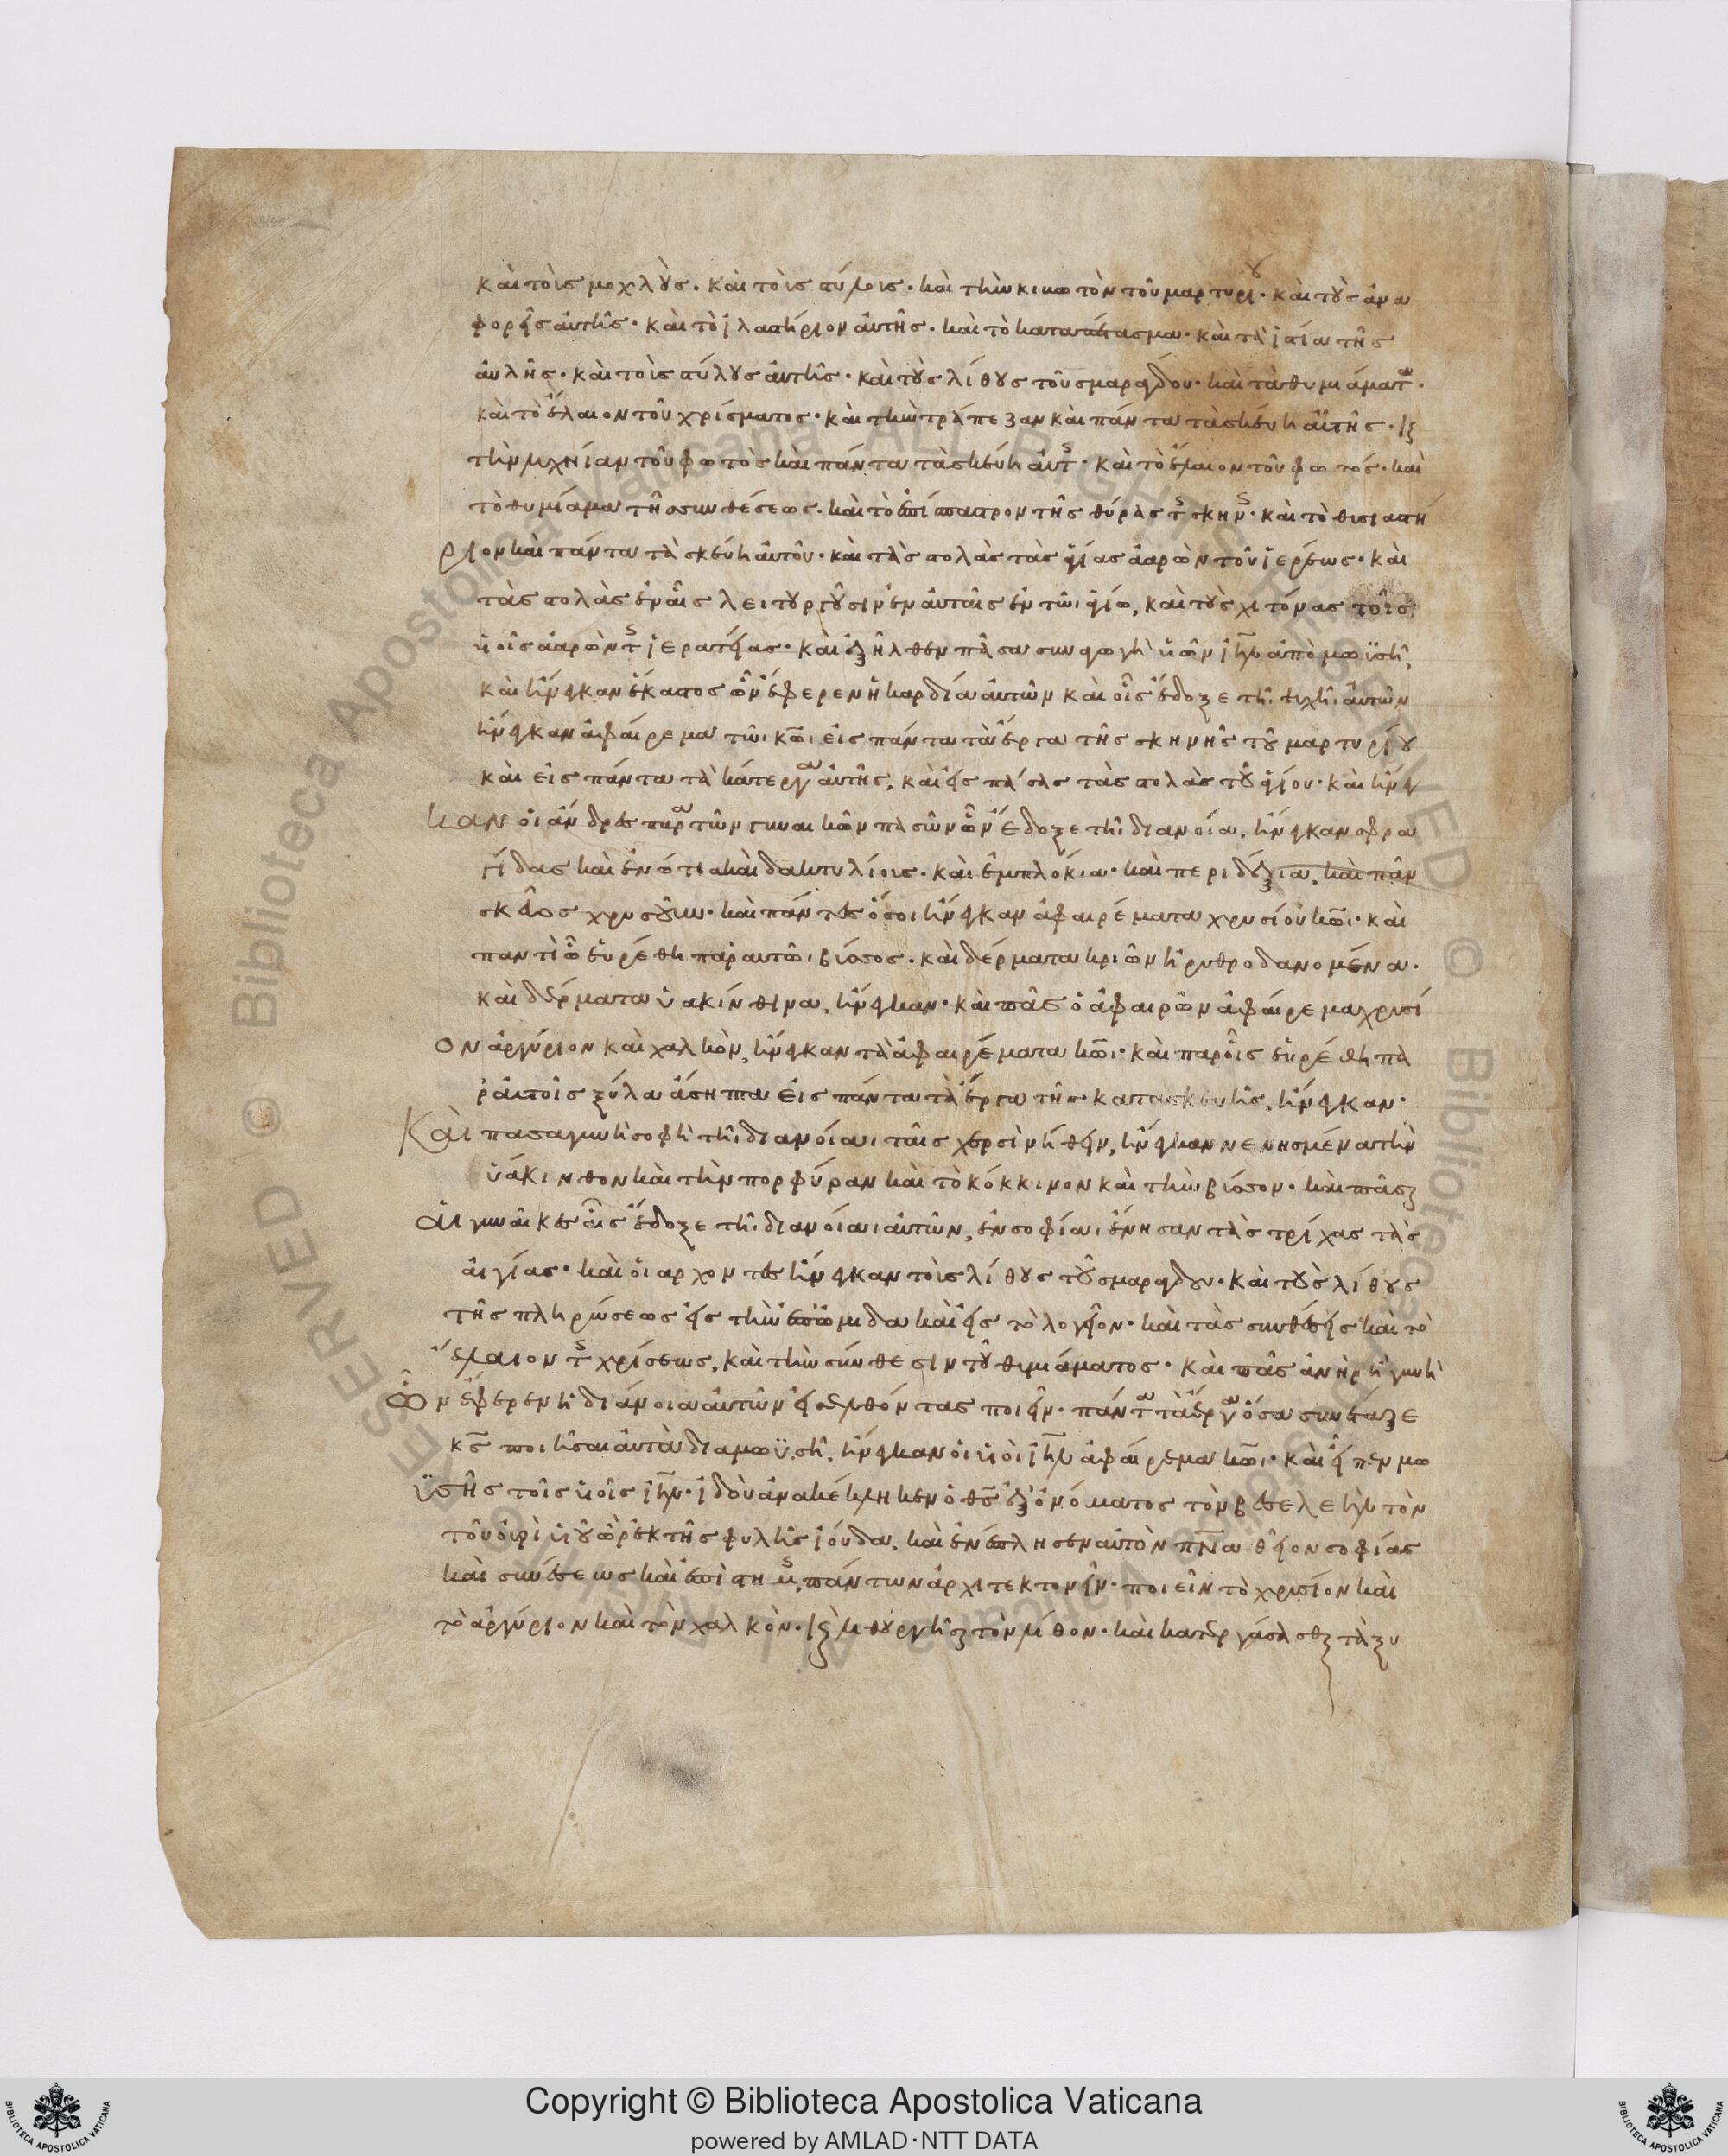 καὶ τοὺς μοχλοὺς· καὶ τοὺς στύλους· καὶ τὴν κιβωτὸν τοῦ μαρτυρίου· καὶ τοὺς ἀνα
φορεῖς αὐτῆς· καὶ τὸ ἱλαστήριον αὐτῆς· καὶ τὸ καταπέτασμα· καὶ τὰ ἱστία τῆς
αὐλῆς· καὶ τοὺς στύλους αὐτῆς· καὶ τοὺς λίθους τοῦ σμαράγδου· καὶ τὰ θυμιάματα·
καὶ τὸ ἔλαιον τοῦ χρίσματος· καὶ τὴν τράπεζαν καὶ πάντα τὰ σκεύη αὐτῆς· καὶ
τὴν λυχνίαν τοῦ φωτὸς καὶ πάντα τὰ σκεύη αὐτῆς· καὶ τὸ ἔλαιον τοῦ φωτός· καὶ
τὸ θυμίαμα τῆς συνθέσεως· καὶ τὸ ἐπίσπαστρον τῆς θύρας τῆς σκηνῆς· καὶ τὸ θυσιαστή
ριον καὶ πάντα τὰ σκεύη αὐτοῦ· καὶ τὰς στολὰς τὰς ἁγίας ἀαρὼν τοῦ ἱερέως· καὶ
τὰς στολὰς ἐν αἷς λειτουργοῦσιν ἐν αὐταῖς ἐν τῶι ἁγίω, καὶ τοὺς χιτῶνας τοῖς
υἱοῖς ἀαρὼν τῆς ἱερατείας· καὶ ἐξῆλθεν πᾶσα συναγωγὴ υἱῶν ἰηλ ἀπὸ μωϋσῆ,
καὶ ἤνεγκαν ἕκαστος ὧν ἔφερεν ἡ καρδία αὐτῶν καὶ οἷς ἔδοξε τῆι ψυχῆι αὐτῶν
ἤνεγκαν ἀφαίρεμα τῶι κωι εἰς πάντα τὰ ἔργα τῆς σκηνῆς τοῦ μαρτυρίου
καὶ εἰς πάντα τὰ κάτεργα αὐτῆς, καὶ εἰς πάσας τὰς στολὰς τοῦ ἁγίου· καὶ ἤνεγ
καν οἱ ἄνδρες παρὰ τῶν γυναικῶν πασῶν ὧν ἔδοξε τῆι διανοία, ἤνεγκαν σφρα
γίδας καὶ ἐνώτια καὶ δακτυλίους· καὶ ἐμπλόκια· καὶ περιδέξια, καὶ πᾶν
σκεῦος χρυσοῦν· καὶ πάντες ὅσοι ἤνεγκαν ἀφαιρέματα χρυσίου κωι· καὶ
παντὶ ὧ εὑρέθη παρ αυτῶι βύσσος· καὶ δέρματα κριῶν ἠρυθροδανομένα·
καὶ δέρματα ὑακίνθινα, ἤνεγκαν· καὶ πᾶς ὁ ἀφαιρῶν ἀφαίρεμα χρυσί
ον ἀργύριον καὶ χαλκὸν, ἤνεγκαν τὰ ἀφαιρέματα κωι· καὶ παρ οἷς εὑρέθη πα
ρ αὐτοῖς ξύλα ἄσηπτα εἰς πάντα τὰ ἔργα τῆς κατασκευῆς, ἤνεγκαν·
Καὶ πασα γυνὴ σοφὴ τῆι διανοίαι ταῖς χερσὶ νήθειν, ἤνεγκαν νενησμένα τὴν
ὑάκινθον καὶ τὴν πορφύραν καὶ τὸ κόκκινον καὶ τὴν βύσσον· καὶ πᾶσαι
αἱ γυναῖκες αἷς ἔδοξε τῆι διανοίαι αὐτῶν, ἐν σοφίαι ἔνησαν τὰς τρίχας τὰς
αἰγίας· καὶ οἱ αρχοντες ἤνεγκαν τοὺς λίθους τοῦ σμαράγδου· καὶ τοὺς λίθους
τῆς πληρώσεως εἰς τὴν ἐπωμίδα καὶ εἰς τὸ λογεῖον· καὶ τὰς συνθέσεις καὶ τὸ
ἔλαιον τῆς χρίσεως, καὶ τὴν σύνθεσιν τοῦ θυμιάματος· καὶ πᾶς ἀνὴρ ἢ γυνὴ
ὧν ἔφερεν ἡ διάνοια αὐτῶν εἰσελθόντας ποιεῖν· πάντα τὰ ἔργα ὅσα συνέταξε
κς ποιῆσαι αὐτὰ δια μωϋσῆ, ἤνεγκαν οἱ υἱοὶ ἰηλ ἀφαίρεμα κωι· καὶ εἶπεν μω
ϋσῆς τοῖς υἱοῖς ἰηλ· ἰδοὺ ἀνακέκληκεν ὁ θς ἐξ ὀνόματος τὸν βεσελεὴλ τὸν
τοῦ οὐρὶ υἱοῦ ὢρ ἐκ τῆς φυλῆς ἰούδα, καὶ ἐνέπλησεν αὐτὸν πνα θεῖον σοφίας
καὶ συνέσεως καὶ ἐπιστήμης πάντων ἀρχιτεκτονεῖν· ποιεῖν τὸ χρυσίον καὶ
τὸ ἀργύριον καὶ τὸν χαλκὸν· καὶ λιθουργῆσαι τὸν λίθον· καὶ κατεργάσασθαι τὰ ξυ
Copyright © Biblioteca Apostolica Vaticana
powered by AMLAD·NTT DATA